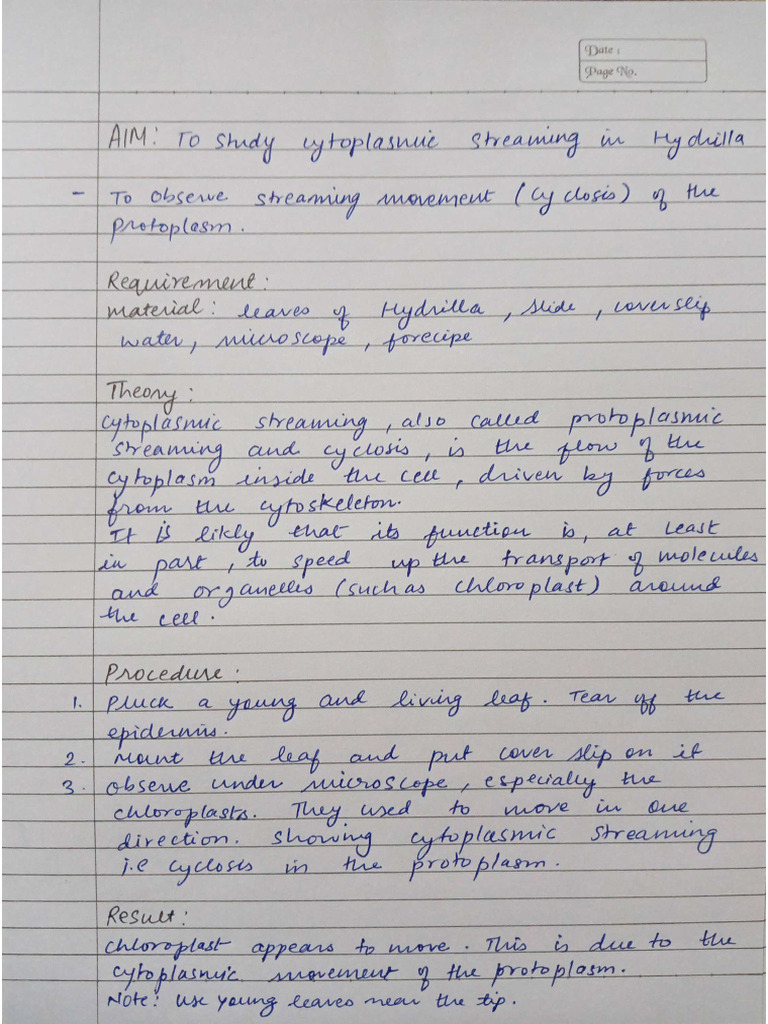 Date :
Page No.
AIM: To study cytoplasmic streaming in Hydrilla
- To observe streaming movement (cyclosis) of the
protoplasm.
Requirement:
material: leaves of Hydrilla, slide, coverslip
water, microscope, forecipe
Theory:
cytoplasmic streaming, also called protoplasmic
streaming and cyclosis, is the flow of the
cytoplasm inside the cell, driven by forces
from the cytoskeleton.
It is likly that its function is, at least
in part, to speed up the transport of molecules
and organelles (such as chloroplast) around
the cell.
Procedure:
1. Pluck a young and living leaf. Tear off the
epidermis.
2. Mount the leaf and put cover slip on it
3. observe under microscope, especially the
chloroplasts. They used to move in one
direction. showing cytoplasmic streaming
i.e cyclosis in the protoplasm.
Result:
chloroplast appears to move. This is due to the
cytoplasmic movement of the protoplasm.
Note: use young leaves near the tip.